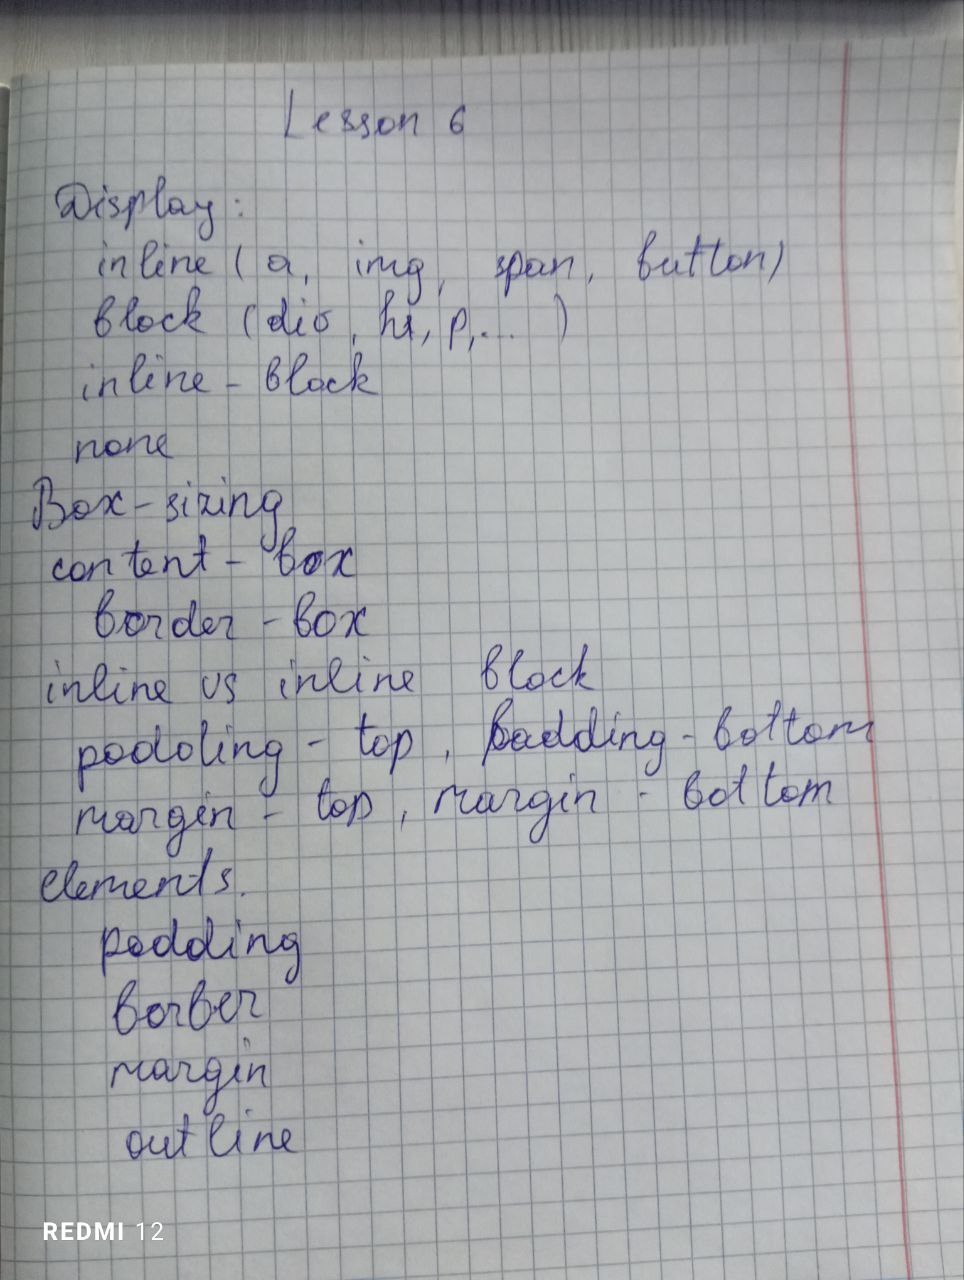 Lesson 6
Display:
inline (a, img, span, button)
block (div, hr, p, ... )
inline - block
none
Box - sizing
content - box
border - box
inline vs inline block
padding - top, padding - bottom
margin - top, margin - bottom
elements.
padding
borber
margin
outline
REDMI 12